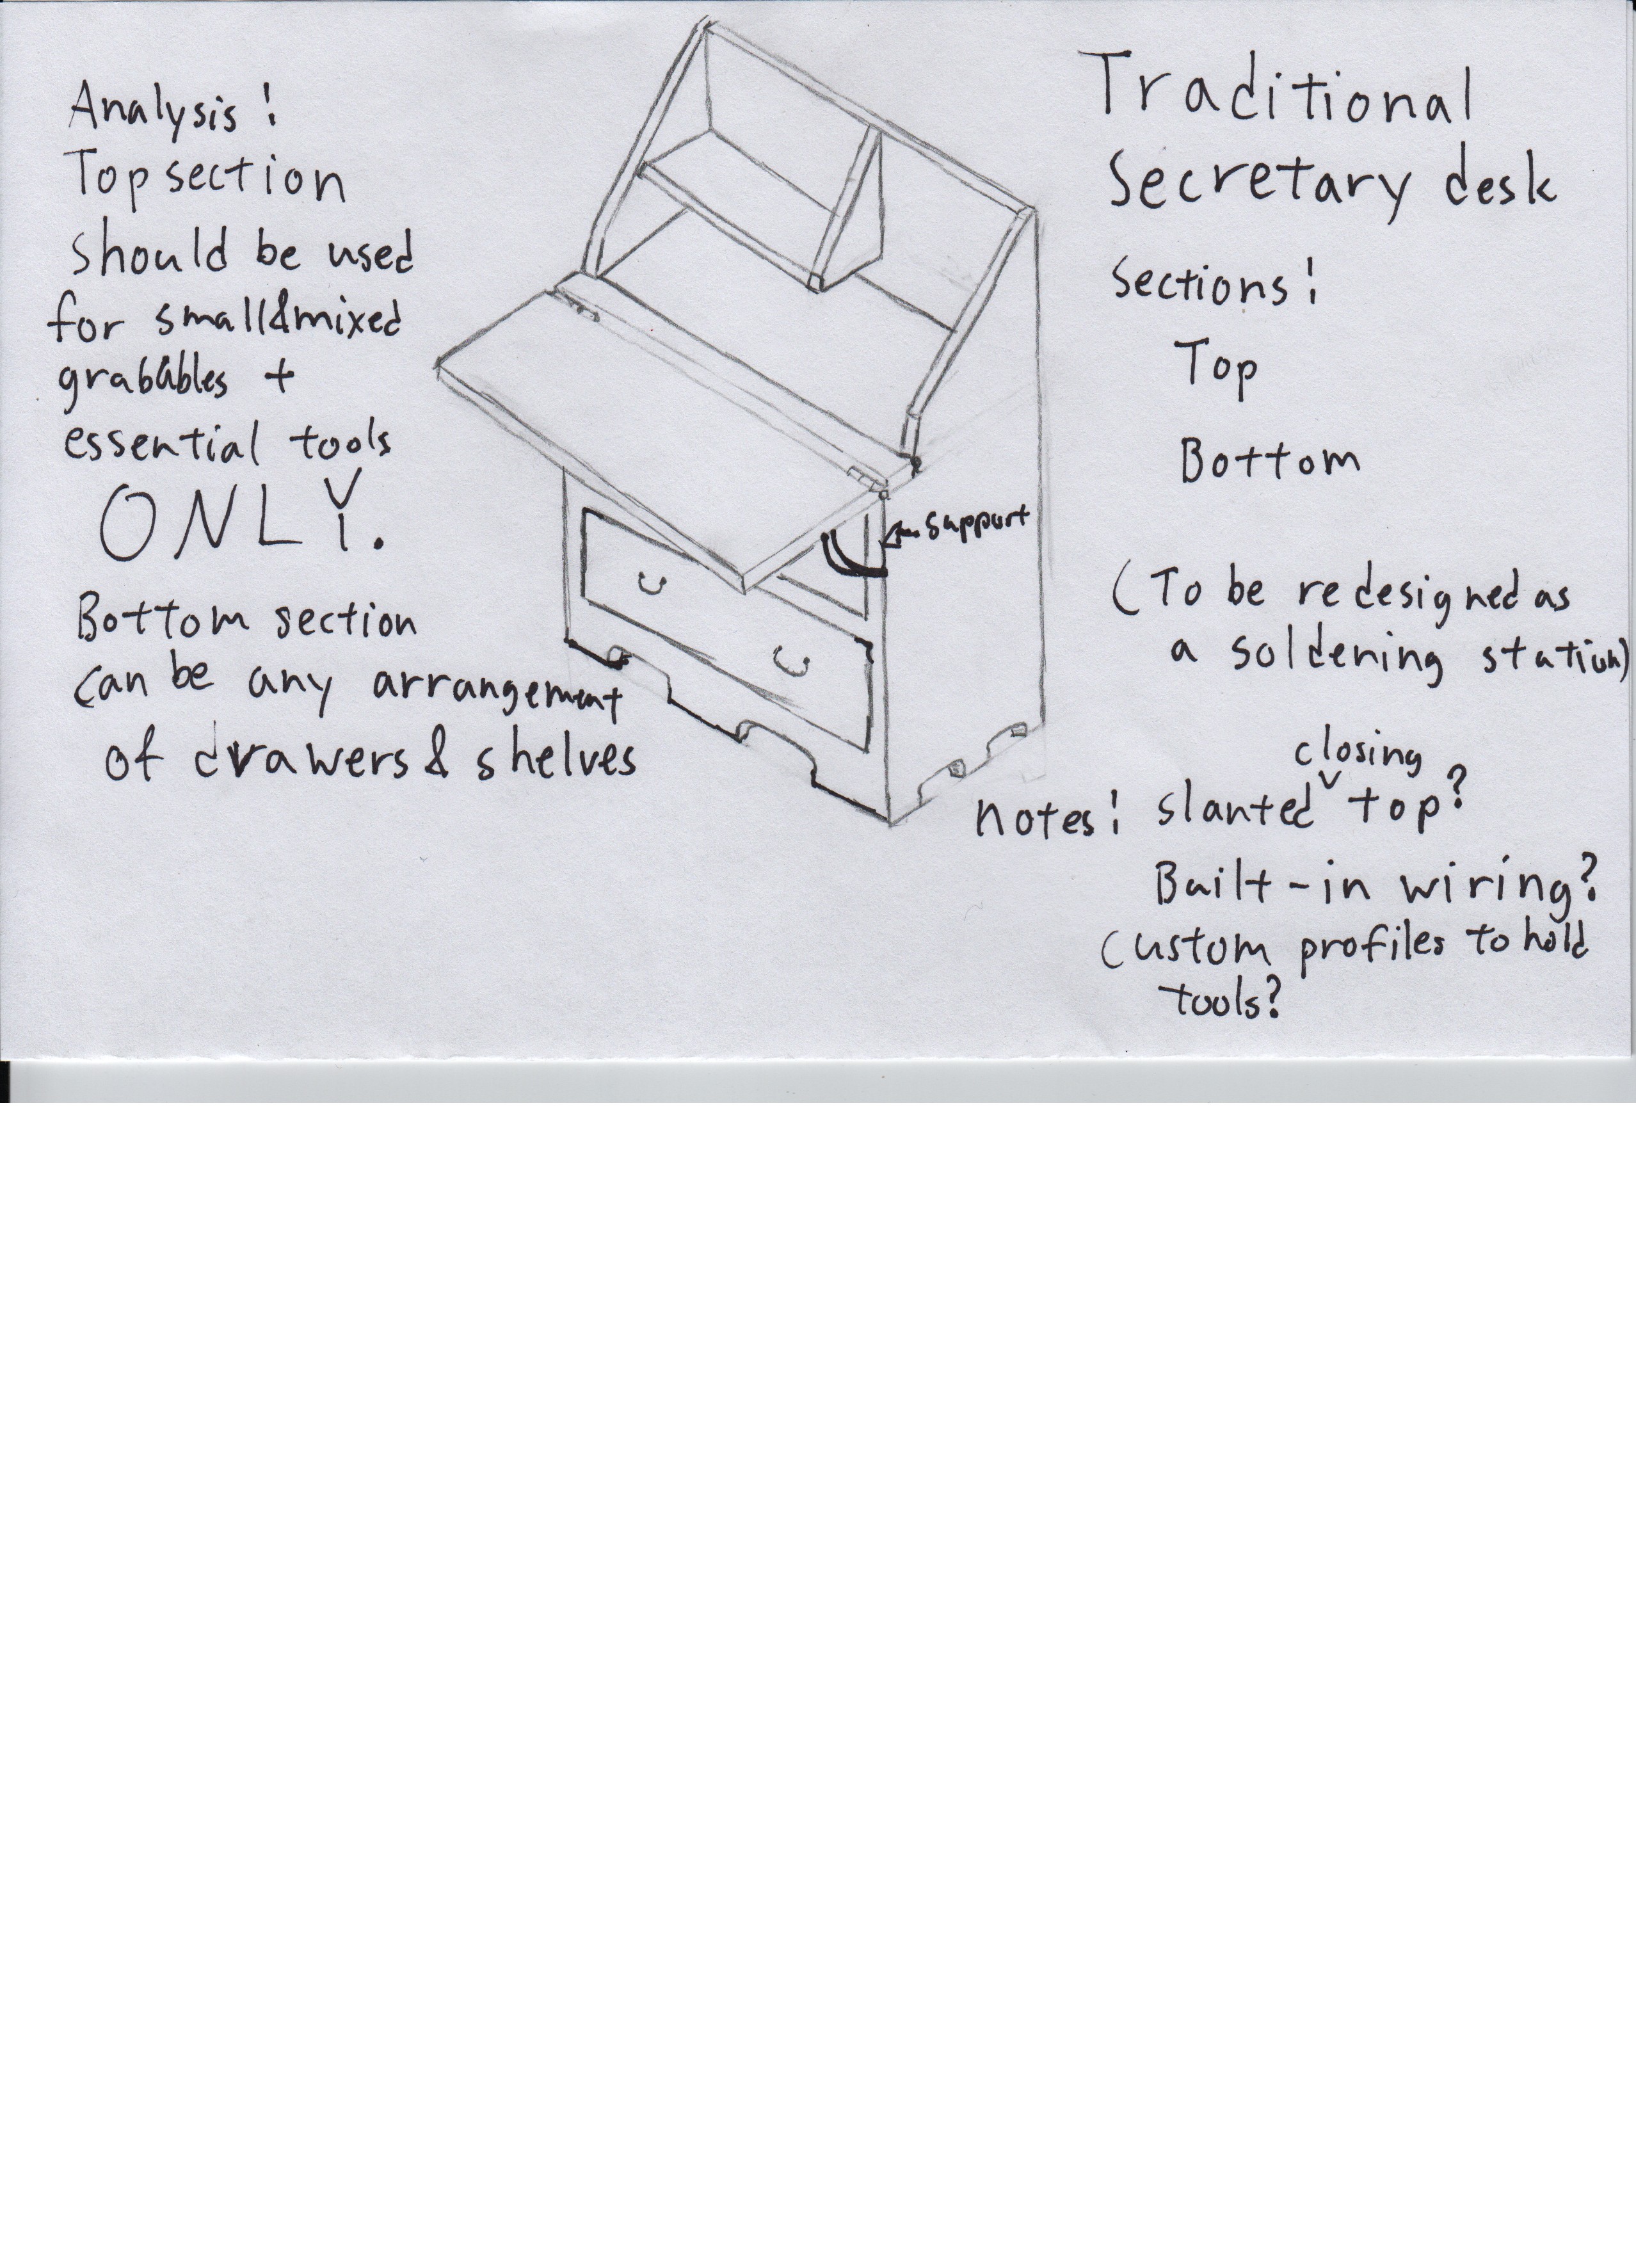 Analysis!
Top section
should be used
for small&mixed
grabables +
essential tools
ONLY.
Bottom section
can be any arrangement
of drawers & shelves
Traditional
Secretary desk
Sections!
Top
Bottom
support
(To be redesigned as
a soldening station)
closing
notes! slanted ˅ top?
Built-in wiring?
Custom profiles to hold
tools?